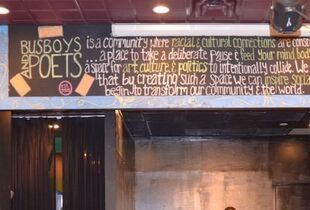 BUSBOYS
AND
POETS
is a community where racial & cultural connections are cons
a place to take a deliberate pause & feed your mind body
a space for art culture & politics to intentionally collide. We
that by creating such a space we can inspire social
begin to transform our community & the world.